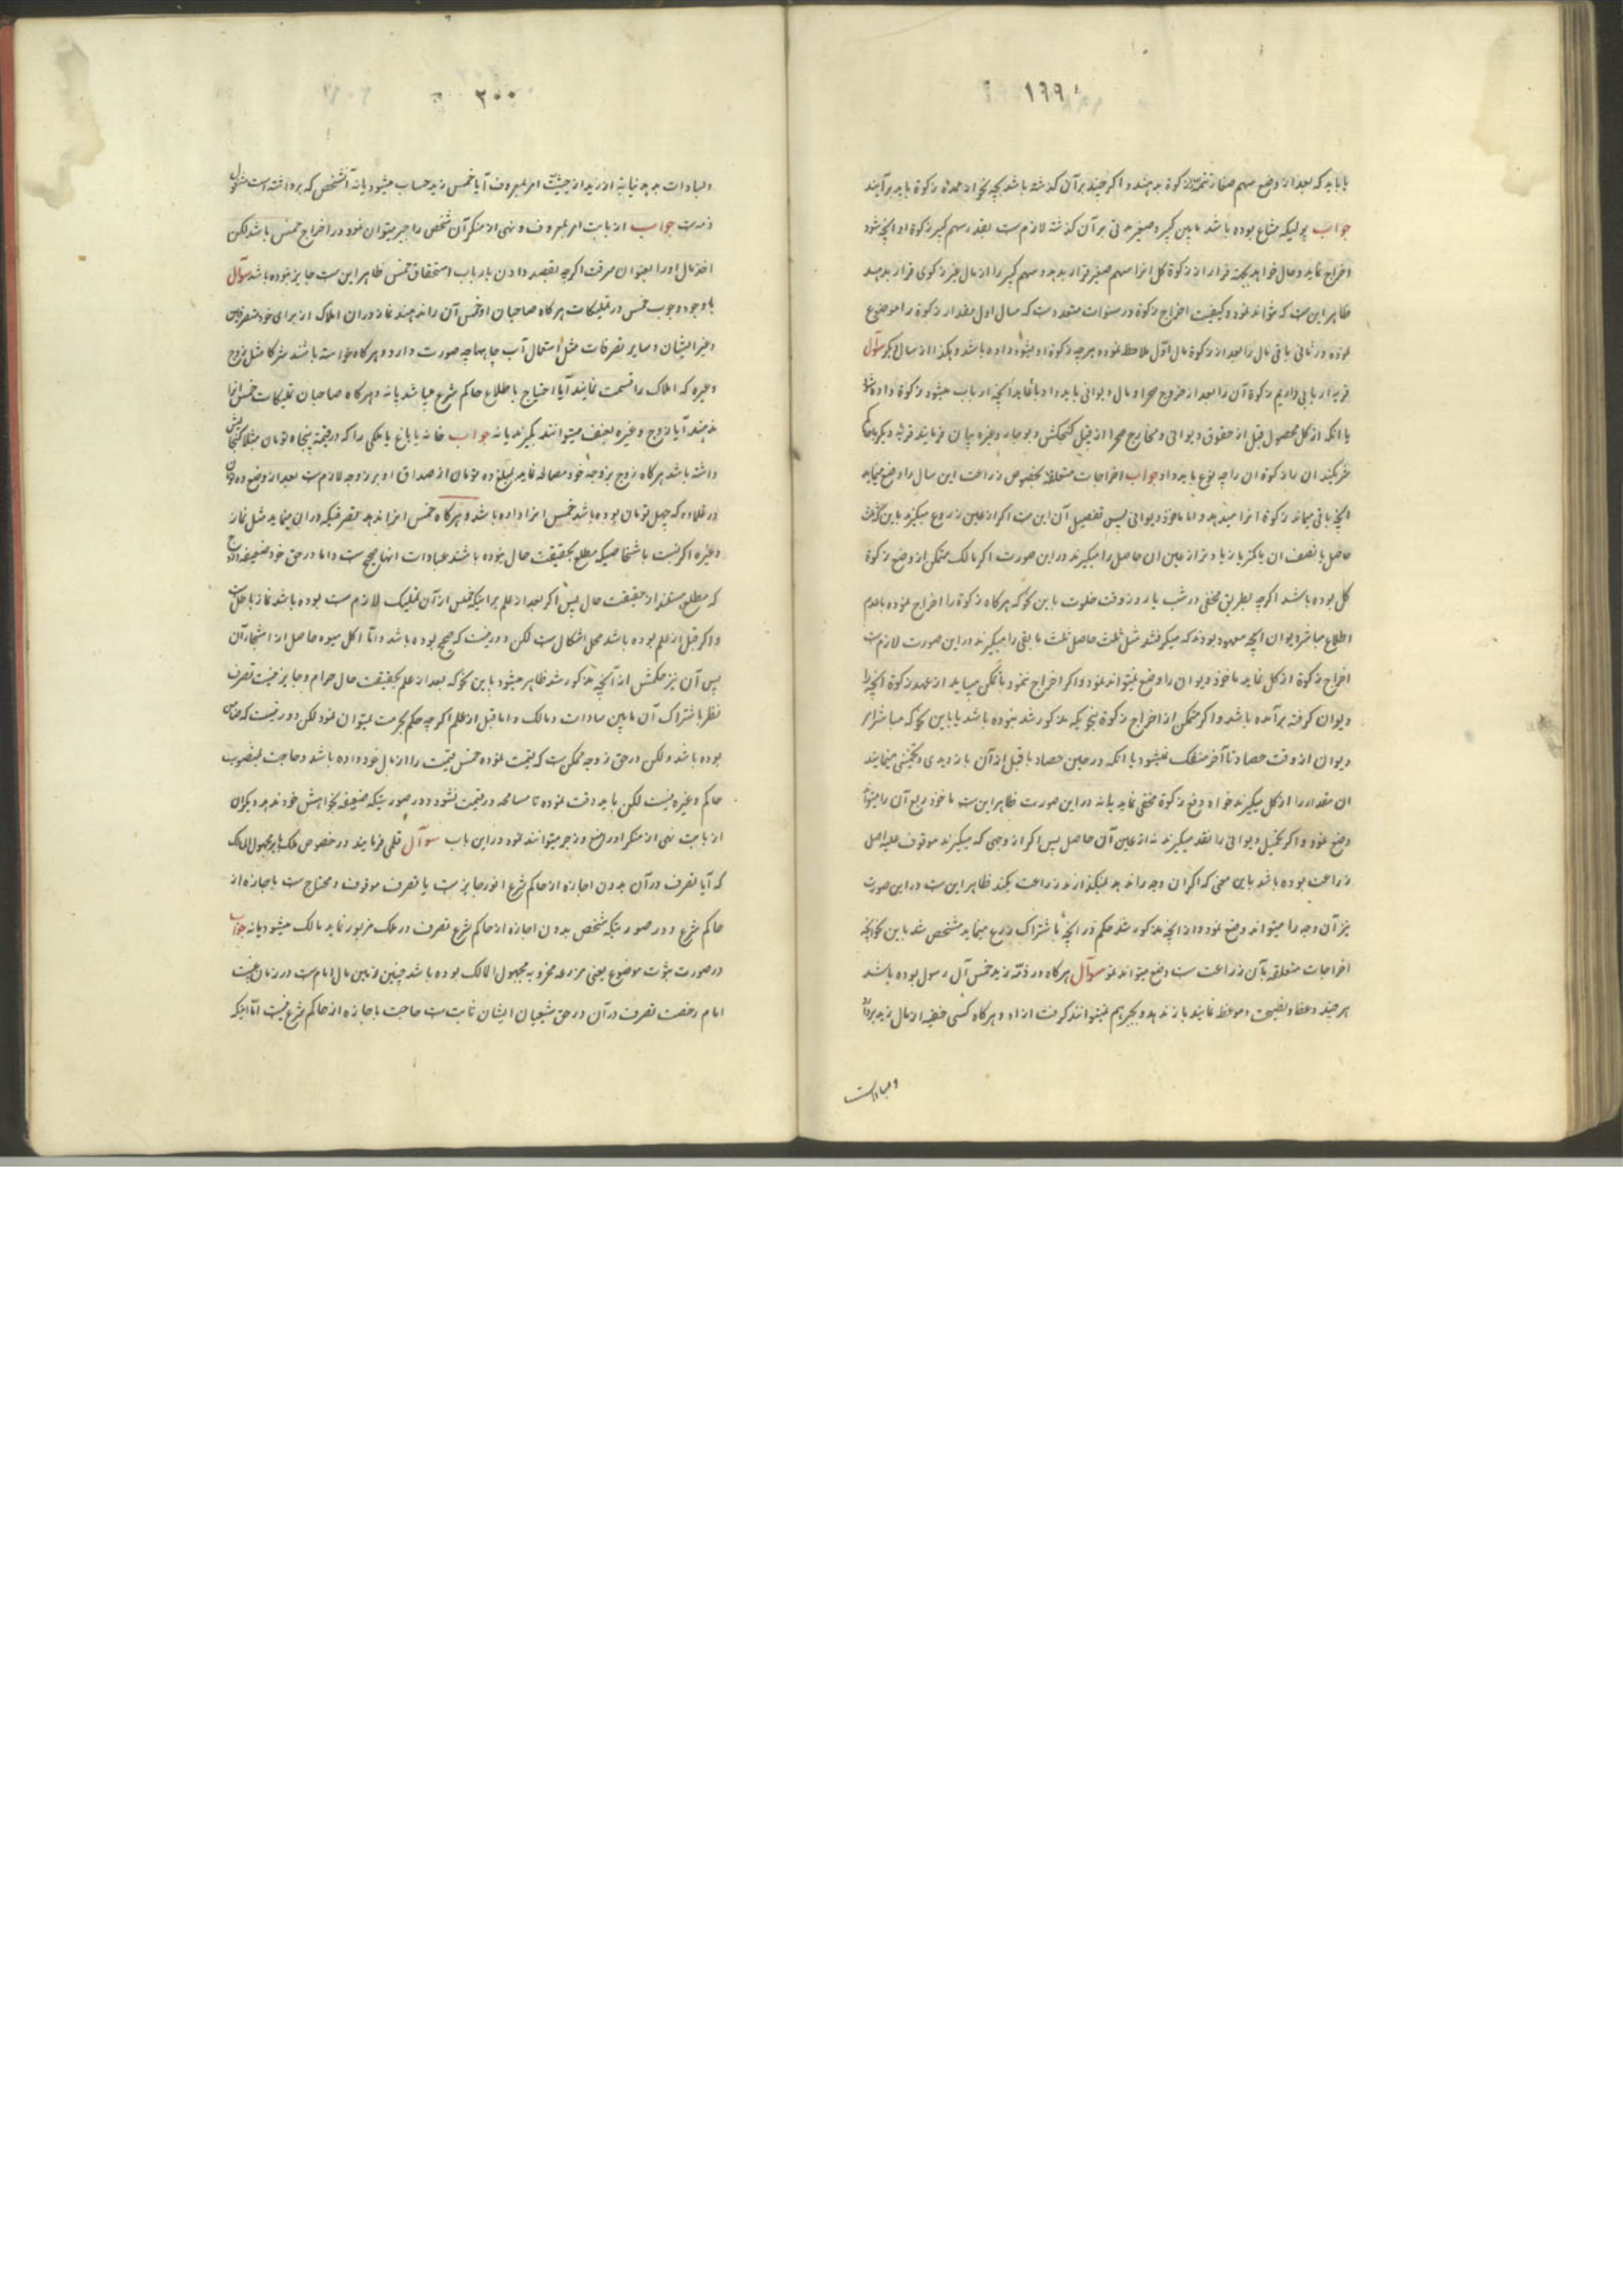 ۱۹۹
باید که بعد از وضع سهم صغار تتمه را زکوة بدهند و اگر چند بر آن گذشته باشد بچه نحو از عهده زکوة باید برآیند
جواب پولیکه مشاع بوده باشد مابین کبیر و صغیر مدتی بر آن گذشته لازمست بقدر سهم کبیر زکوة او آنچه شود
اخراج نماید و حال خواهد بجهة فرار از زکوة کل انرا سهم صغیر قرار بدهد و سهم کبیر را از مال غیر زکوی قرار بدهد
ظاهر اینست که تواند نمود و کیفیت اخراج زکوة در سنوات متعدده است که سال اول مقدار زکوة را موضوع
نموده در ثانی باقی مال را بعد از زکوة مال اول ملاحظه نموده هرچه زکوة او میشود داده باشد و هکذا از سال دیگر سوآل
قریه اربابی داریم زکوة آن را بعد از خروج صحرا و مال دیوانی باید داد یا نماید آنچه ارباب میشود زکوة داده شود
یا آنکه از کل محصول قبل از حقوق دیوانی و مخارج صحرا از قبیل گنجکش و بوجار و غیره بیان فرمایند قریه دیگر
خریدند ان را زکوة ان را چه نوع باید داد جواب اخراجات متعلقه بخصوص زراعت این سال را وضع مینماید
آنچه باقی میماند زکوة انرا میدهد و اما ماخوذ دیوانی پس تفصیل آن اینست اگر از عین زروع میگیرند باین نحو ثلث
حاصل یا نصف ان یا کمتر یا زیادتر از عین ان حاصل را میگیرند در این صورت اگر مالک متمکن از وضع زکوة
کل بوده باشد اگرچه بطریق مخفی در شب یا روز وقت خلوت باین نحو که هرگاه زکوة را اخراج نموده با عدم
اطلاع مباشر دیوان آنچه معهود بودند که میگرفتند مثل ثلث حاصل ثلث مابقی را میگیرند در این صورت لازمست
اخراج زکوة از کل نماید ماخوذ دیوان را وضع نمیتواند نمود و اگر اخراج ننمود با تمکن میباید از عهده زکوة آنچه را
دیوان گرفته برآمده باشد و اگر متمکن از اخراج زکوة بنحویکه مذکور شد نبوده باشد یا باین نحو که مباشر از
دیوان از وقت حصاد تا آخر منفک نمیشود یا آنکه در حین حصاد یا قبل از آن بازدیدی و تخمینی مینمایند
ان مقدار را از کل میگیرند خواه دفع زکوة مخفی نماید یا نه در این صورت ظاهر اینست ماخوذ ربع آن را میتواند
وضع نمود و اگر بخیل دیوانی را نقد میگیرند نه از عین آن حاصل پس اگر از وجهی که میگیرند موقوف علیه اصل
زراعت بوده باشد باین معنی که اگر ان وجه را ندهد نمیگذارند زراعت بکند ظاهر اینست در این صورت
نیز آن وجه را میتواند وضع نمود و از آنچه مذکور شد حکم در آنچه باشتراک زرع مینماید مشخص شد باین نحو آنچه
اخراجات متعلقه بآن زراعت است وضع میتواند نمود سوآل هرگاه در ذمه زید خمس آل رسول بوده باشد
هر چند وعظ و نصیحت و موعظه نمایند باز ندهد و بجبر هم نمیتوانند گرفت از او و هرگاه کسی خفیه از مال زید بردارد
والبادات
۲۰۰
والبادات بدهد نیابة از زید از حیثیت امر بمعروف آیا خمس زید حساب میشود یا نه آنشخص که برداشته است مشغول
ذمه است جواب از بابت امر بمعروف و نهی از منکر آن شخص را جبر میتوان نمود در اخراج خمس باشد لکن
اخذ مال او را بعنوان سرقت اگرچه بقصد دادن بارباب استحقاق خمس ظاهر اینست جایز نبوده باشد سوآل
با وجود وجوب خمس در تملیکات هرگاه صاحبان او خمس آن را ندهند نماز در ان املاک از برای خود متصرفین
و غیر ایشان و سایر تصرفات مثل استعمال آب چاهها چه صورت دارد و هرگاه خواسته باشند شرکا مثل زوج
و غیره که املاک را قسمت نمایند آیا احتیاج باطلاع حاکم شرع میباشد یا نه و هرگاه صاحبان تملیکات خمس انرا
ندهند آیا زوج و غیره بعنف میتوانند بگیرند یا نه جواب خانه یا باغ یا ملکی را که در قیمة پنجاه تومان مثلا گنجایش
داشته باشد هرگاه زوج بزوجه خود مصالحه نماید بمبلغ ده تومان از صداق او بر زوجه لازمست بعد از وضع ده تومان
در علاوه که چهل تومان بوده باشد خمس انرا داده باشد و هرگاه خمس انرا ندهد تصرفیکه در ان مینماید مثل نماز
و غیره اگر نسبت باشخاصیکه مطلع بحقیقت حال نبوده باشند عبادات انها صحیح است و اما در حق خود ضعیفه و ازواج
که مطلع هستند از حقیقت حال پس اگر بعد از علم برانیکه خمس از آن تملیک لازمست بوده باشد نماز باطل است
و اگر قبل از علم بوده باشد محل اشکالست لکن دور نیست که صحیح بوده باشد و اما اکل میوه حاصل از اشجار آن
پس آن نیز حکمش از آنچه مذکور شد ظاهر میشود باین نحو که بعد از علم بحقیقت حال حرام و جایز نیست تصرف
نظر باشتراک آن مابین سادات و مالک و اما قبل از علم اگرچه حکم بحرمت نمیتوان نمود لکن دور نیست که ضامن
بوده باشد و لکن در حق زوجه ممکن است که قیمت نموده خمس قیمت را از مال خود داده باشد و حاجت بتصویب
حاکم و غیره نیست لکن باید دقت نموده تا مسامحه در قیمت نشود و در صورتیکه ضعیفه بخواهش خود ندهد دیگران
از بابت نهی از منکر او را منع و زجر میتوانند نمود در این باب سوآل قلمی فرمایند در خصوص ملک بایر مجهول المالک
که آیا تصرف در آن بدون اجازه از حاکم شرع انور جایز است یا تصرف موقوف و محتاج است باجازه از
حاکم شرع و در صورتیکه شخص بدون اجازه از حاکم شرع تصرف در ملک مزبور نماید مالک میشود یا نه جواب
در صورت ثبوت موضوع یعنی مزرعه مخروبه مجهول المالک بوده باشد چنین زمین مال امامست در زمان غیبت
امام رخصت تصرف در آن در حق شیعیان ایشان ثابت است حاجت باجازه از حاکم شرع نیست اما اینکه